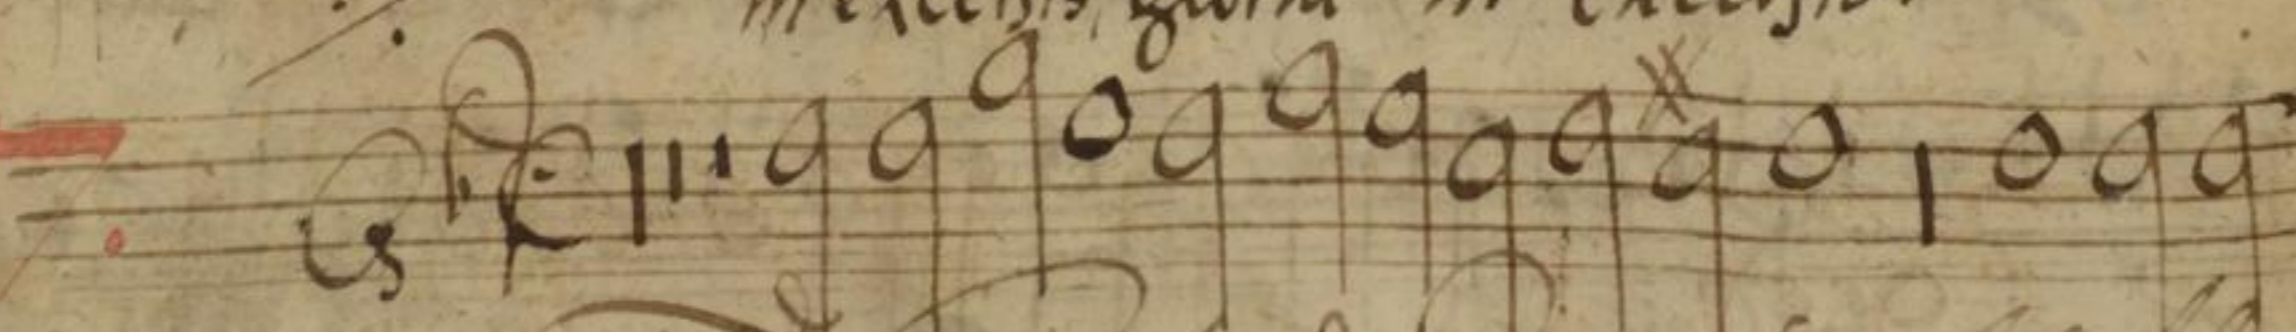 in excelsis, gloria in excelsis.